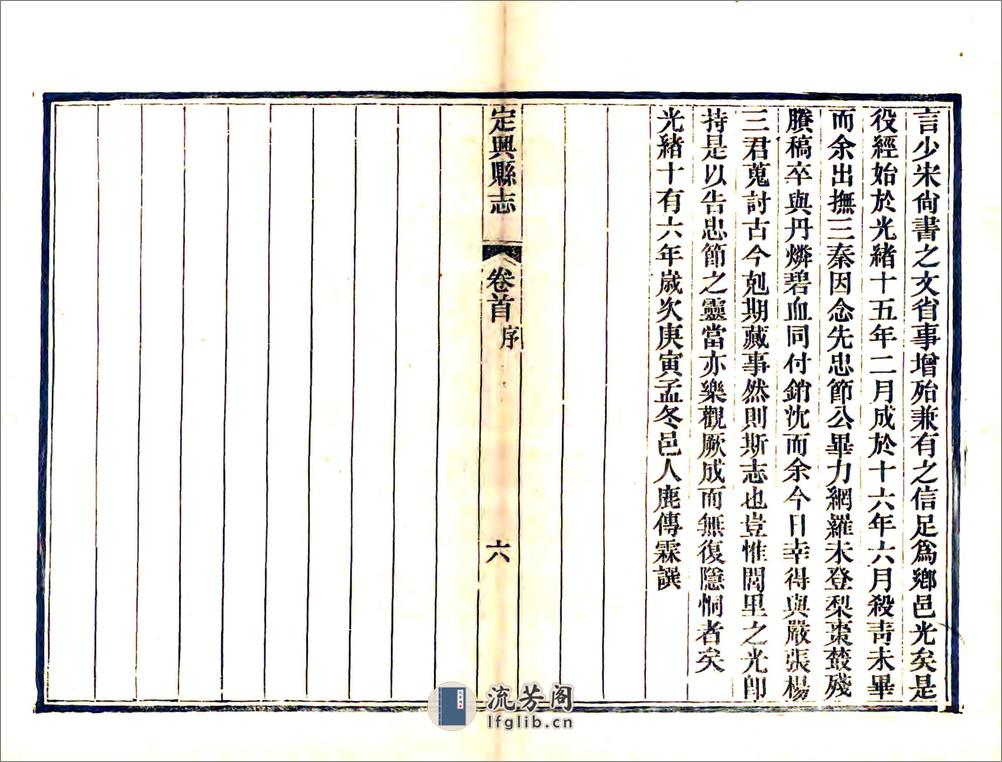 言少宋尙書之文省事增殆兼有之信足爲鄉邑光矣是
役經始於光緒十五年二月成於十六年六月殺靑未畢
而余出撫三秦因念先忠節公畢力網羅未登梨棗叢殘
賸稿卒與丹燐碧血同付銷沈而余今日幸得與嚴張楊
三君蒐討古今剋期蕆事然則斯志也豈惟閭里之光卽
持是以告忠節之靈當亦樂觀厥成而無復隱恫者矣
光緒十有六年歲次庚寅孟冬邑人鹿傳霖譔
定興縣志
卷首
序
六
流芳阁
lfglib.cn